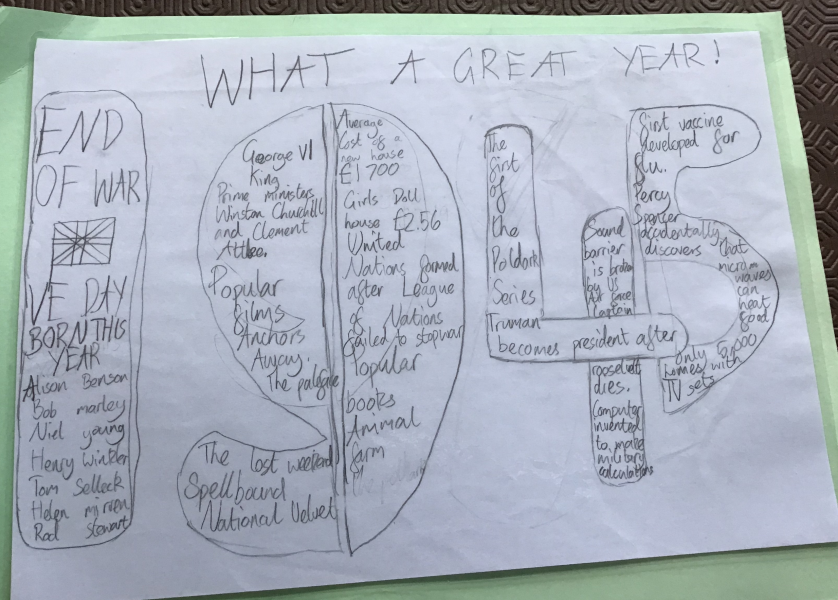 WHAT A GREAT YEAR!
END
OF WAR
VE DAY
BORN THIS
YEAR
Alison Benson
Bob marley
Niel young
Henry Winkler
Tom Selleck
Helen mirren
Rod stewart
George VI
King
Prime ministers
Winston Churchill
and Clement
Attlee.
Popular
films
Anchors
Away.
The
The lost weekend
Spellbound
National Velvet
Average
Cost of a
new house
£1700
Girls Doll
house £2.56
United
Nations formed
after League
of Nations
failed to stop war
Popular
books
Animal
farm
The
first
of
the
Poldark
Series
Truman
becomes president after
roosevelt
dies.
Computer
invented
to make
military
calculations
Sound
barrier
is broken
by US
Air force
Captain
first vaccine
developed for
flu.
Percy
Spencer
accidentally
discovers that
micro
waves
can
heat
food
only 5,000
homes with
TV sets